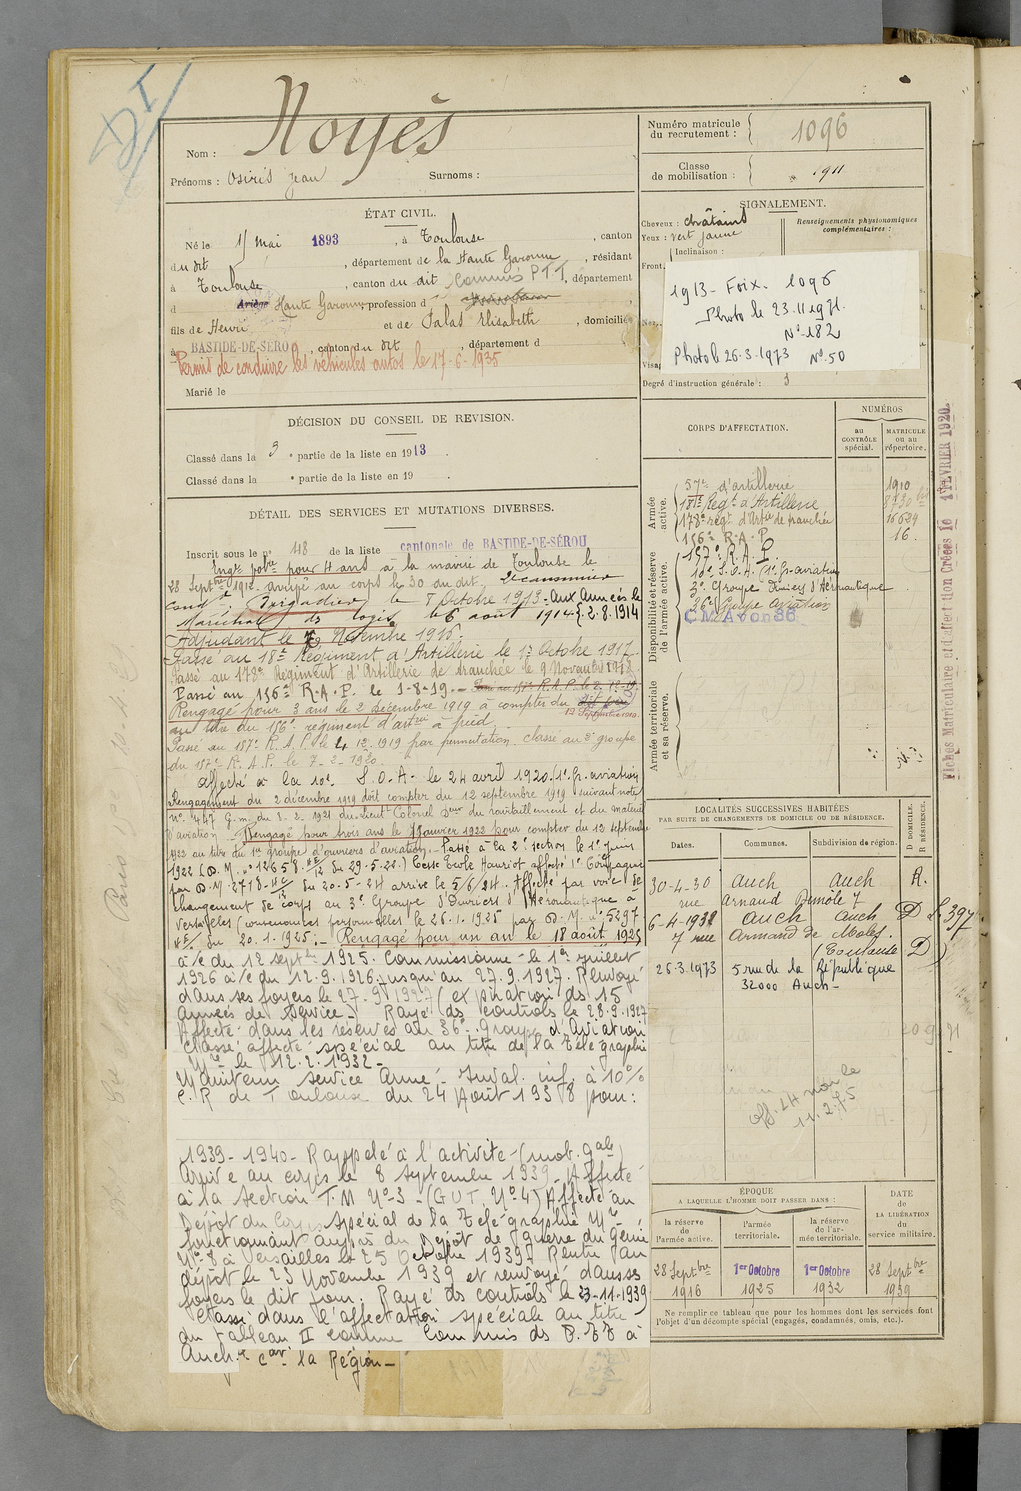 Noyès
Nom :
Prénoms : Osiris Jean Surnoms :
Numéro matricule du recrutement : 1096
Classe de mobilisation : 1911
ÉTAT CIVIL.
Né le 15 mai 1893, à Toulouse, canton
du dit, département de la Haute Garonne, résidant
à Toulouse, canton du dit Commis PTT, département
d Ariège Haute Garonne, profession d
fils de Henri et de Salas Elisabeth, domiciliés
à BASTIDE-DE-SÉROU, canton du dit, département d
Permis de conduire les véhicules autos le 17-6-1935
Marié le
SIGNALEMENT.
Cheveux : châtains
Yeux : vert jaune
Inclinaison :
Front,
Renseignements physionomiques complémentaires :
1913 - Foix. 1096
Photo le 23.11.1971.
N° 182
Photo le 26.3.1973 N° 50
Nez,
Visag
Degré d'instruction générale : 3
DÉCISION DU CONSEIL DE REVISION.
Classé dans la 3e partie de la liste en 1913.
Classé dans la e partie de la liste en 19 .
DÉTAIL DES SERVICES ET MUTATIONS DIVERSES.
Inscrit sous le n° 48 de la liste cantonale de BASTIDE-DE-SÉROU
Engé volre pour 4 ans à la mairie de Toulouse le
28 Septbre 1912 arrivé au corps le 30 au dit. 2e canonnier
condr Brigadier le 7 Octobre 1913 - Aux Armées le
Maréchal des logis le 6 août 1914 2.8.1914
Adjudant le 7 Novembre 1916.
Passé au 18e Régiment d'Artillerie le 1r Octobre 1917.
Passé au 178e Régiment d'Artillerie de tranchée le 9 Novembre 1918
Passé au 156e R.A.P. le 1-8-19.
Rengagé pour 3 ans le 2 décembre 1919 à compter du
12 Septembre 1919.
au titre du 156e régiment d'artrie à pied
Passé au 157e R.A.P. le 4.12.1919 par permutation. classé au 3e groupe
du 157e R.A.P. le 7-2-1920.
affecté à la 10e S.O.A. le 24 avril 1920. (1e Gr. aviation
Rengagement du 2 décembre 1919 doit compter du 12 septembre 1919 suivant note
n° 447 G.m. du 3.2.1921 du Lieut Colonel Dteur du ravitaillement et du matériel
d'aviation - Rengagé pour trois ans le Janvier 1922 pour compter du 12 septembre
1922 au titre du 1er groupe d'ouvriers d'aviation. Passé à la 2e section le 1er juin
1922 (D.M. n° 12658 du 29-5-22.) Ecole Hanriot affecté 1e Compagnie
par D.M. 2718 du 20-5-24 arrivé le 5/6/24. Affecté par voie de
changement de corps au 3e Groupe d'Ouvriers d'Aéronautique à
Versailles (convenances personnelles) le 26.1.1925 par D.M. n° 5297
du 20.1.1925. - Rengagé pour un an le 18 août 1925
à/c du 12 septbre 1925. Commissionné le 1er juillet
1926 à/c du 12.9.1926 jusqu'au 27.9.1927. Renvoyé
dans ses foyers le 27-9-1927 (expiration) ds 15
années de Service - Rayé ds contrôles le 28.9.1927
Affecté dans les réserves au 36e Groupe d'Aviation
Classé affecté spécial au titre de la Télégraphie
Mre le 12.2.1932 -
Maintenu service armé - Inval. inf. à 10%
C.R de Toulouse du 24 Août 1938 pour :
1939-1940 - Rappelé à l'activité (mob. gale)
Arrivé au corps le 8 septembre 1939. Affecté
à la Section T.M N°3 - (GUT N°4) Affecté au
Dépôt du Corps spécial de la Télégraphie Mre
fonctionnant auprès du Dépôt de guerre du Génie
N° 8 à Versailles le 25 Octobre 1939. Rentré au
dépôt le 23 Novembre 1939 et renvoyé dans ses
foyers le dit jour. Rayé ds contrôls le 23-11-1939
Classé dans l'affectation spéciale au titre
du tableau II comme Commis ds P.T.T à
Auch. la Région -
CORPS D'AFFECTATION.
NUMÉROS
au CONTRÔLE spécial.
MATRICULE ou au répertoire.
Armée active.
57e d'artillerie 1910
18e Régt d'Artillerie 8730 bis
178e régt d'Artie de tranchée 16624
156e R.A.P. 16.
Disponibilité et réserve de l'armée active.
157e R.A.P.
10e S.O.A. (1e Gr. aviation
3e Groupe Ouvriers d'Aéronautique
36e Groupe aviation
C M Avion 36
Armée territoriale et sa réserve.
Fiches Matriculaire et d'affection Créées le 1er FEVRIER 1920.
LOCALITÉS SUCCESSIVES HABITÉES
PAR SUITE DE CHANGEMENTS DE DOMICILE OU DE RÉSIDENCE.
Dates. Communes. Subdivision de région. D DOMICILE. R RÉSIDENCE.
30-4-30 Auch Auch R.
rue Arnaud Démôle 7
6-4-1932 Auch Auch D
7 rue Armand de Moles.
(Toulouse D)
26.3.1973 5 rue de la République
32000 Auch -
11.2.75
ÉPOQUE
A LAQUELLE L'HOMME DOIT PASSER DANS :
la réserve de l'armée active.
l'armée territoriale.
la réserve de l'armée territoriale.
DATE de LA LIBÉRATION du service militaire.
28 Septbre 1916
1er Octobre 1925
1er Octobre 1932
28 Septbre 1939
Ne remplir ce tableau que pour les hommes dont les services font
l'objet d'un décompte spécial (engagés, condamnés, omis, etc.).